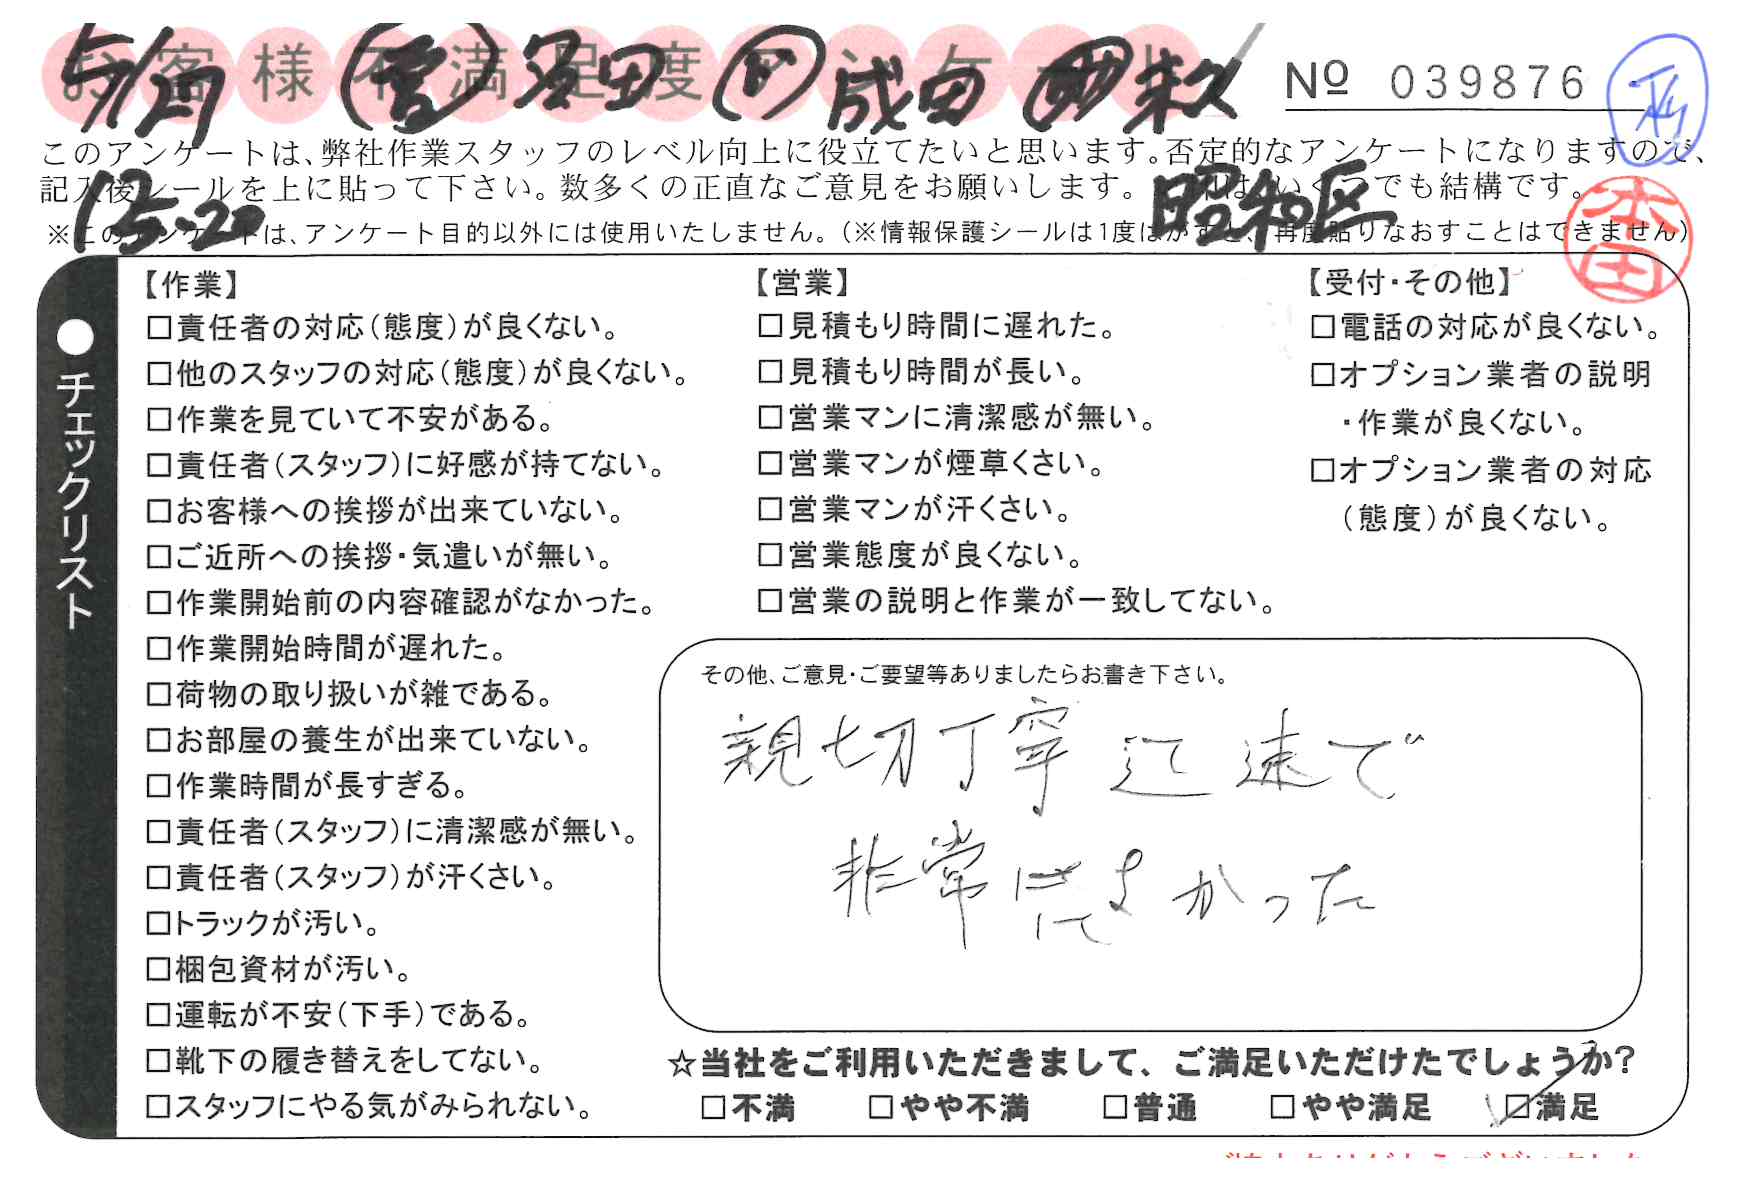 お客様不満足度アンケート
5/1 (営) 石田 成田
№ 039876
このアンケートは、弊社作業スタッフのレベル向上に役立てたいと思います。否定的なアンケートになりますので、
記入後シールを上に貼って下さい。数多くの正直なご意見をお願いします。 いくつでも結構です。
13 5.20 昭和区
本田
※このアンケートは、アンケート目的以外には使用いたしません。(※情報保護シールは1度はがすと、再度貼りなおすことはできません)
●チェックリスト
【作業】
□責任者の対応(態度)が良くない。
□他のスタッフの対応(態度)が良くない。
□作業を見ていて不安がある。
□責任者(スタッフ)に好感が持てない。
□お客様への挨拶が出来ていない。
□ご近所への挨拶・気遣いが無い。
□作業開始前の内容確認がなかった。
□作業開始時間が遅れた。
□荷物の取り扱いが雑である。
□お部屋の養生が出来ていない。
□作業時間が長すぎる。
□責任者(スタッフ)に清潔感が無い。
□責任者(スタッフ)が汗くさい。
□トラックが汚い。
□梱包資材が汚い。
□運転が不安(下手)である。
□靴下の履き替えをしてない。
□スタッフにやる気がみられない。
【営業】
□見積もり時間に遅れた。
□見積もり時間が長い。
□営業マンに清潔感が無い。
□営業マンが煙草くさい。
□営業マンが汗くさい。
□営業態度が良くない。
□営業の説明と作業が一致してない。
【受付・その他】
□電話の対応が良くない。
□オプション業者の説明
・作業が良くない。
□オプション業者の対応
(態度)が良くない。
その他、ご意見・ご要望等ありましたらお書き下さい。
親切丁寧迅速で
非常によかった
☆当社をご利用いただきまして、ご満足いただけたでしょうか?
□不満 □やや不満 □普通 □やや満足 ☑満足